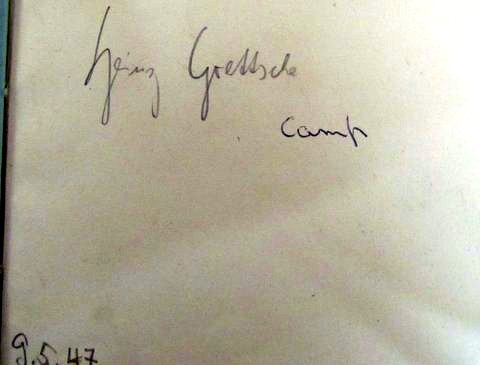 Heinz Grettsche
Camp
9.5.47